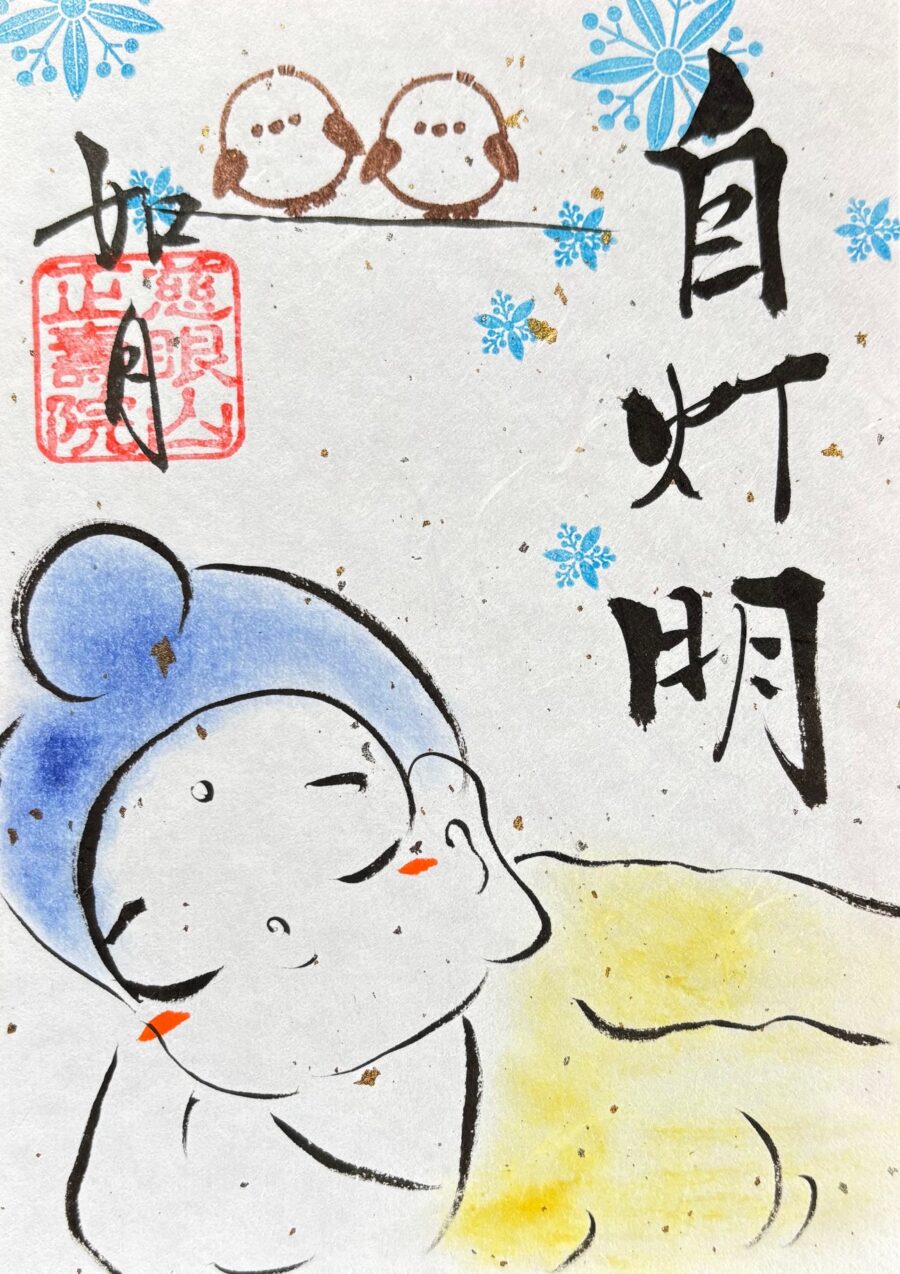 自灯明
如月
慈眼山
正壽院